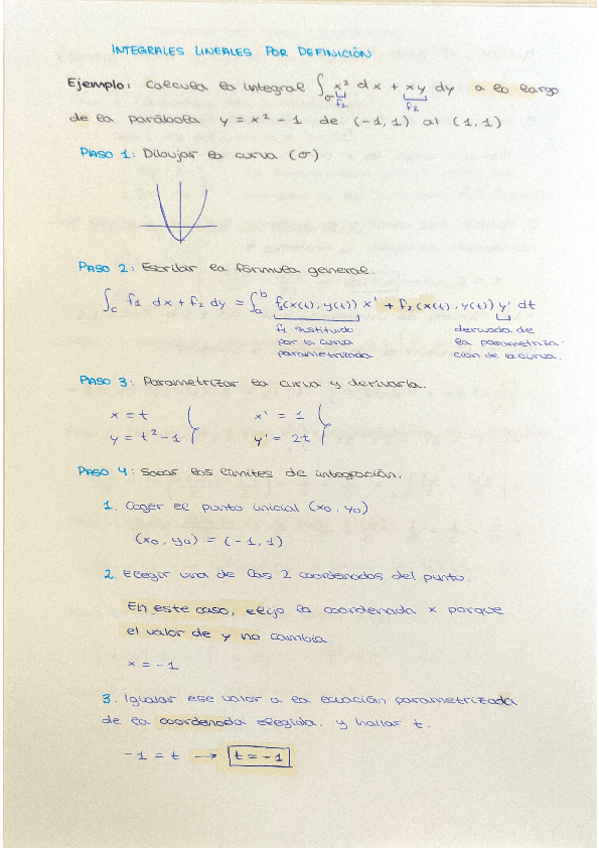 INTEGRALES LINEALES POR DEFINICIÓN
Ejemplo: Calcula la integral ∫σ x² dx + xy dy a lo largo
f₁ f₂
de la parábola y = x² - 1 de (-1,1) al (1,1)
PASO 1: Dibujar la curva (σ)
PASO 2: Escribir la fórmula general.
∫c f₁ dx + f₂ dy = ∫ₐᵇ f₁(x(t), y(t)) x' + f₂(x(t), y(t)) y' dt
f₁ sustituido derivada de
por la curva la parametriza-
parametrizada ción de la curva.
PASO 3: Parametrizar la curva y derivarla.
x = t } x' = 1 }
y = t² - 1 } y' = 2t }
PASO 4: Sacar los límites de integración.
1. Coger el punto inicial (x₀, y₀)
(x₀, y₀) = (-1, 1)
2. Elegir una de las 2 coordenadas del punto.
En este caso, elijo la coordenada x porque
el valor de y no cambia.
x = -1
3. Igualar ese valor a la ecuación parametrizada
de la coordenada elegida. y hallar t.
-1 = t → t = -1